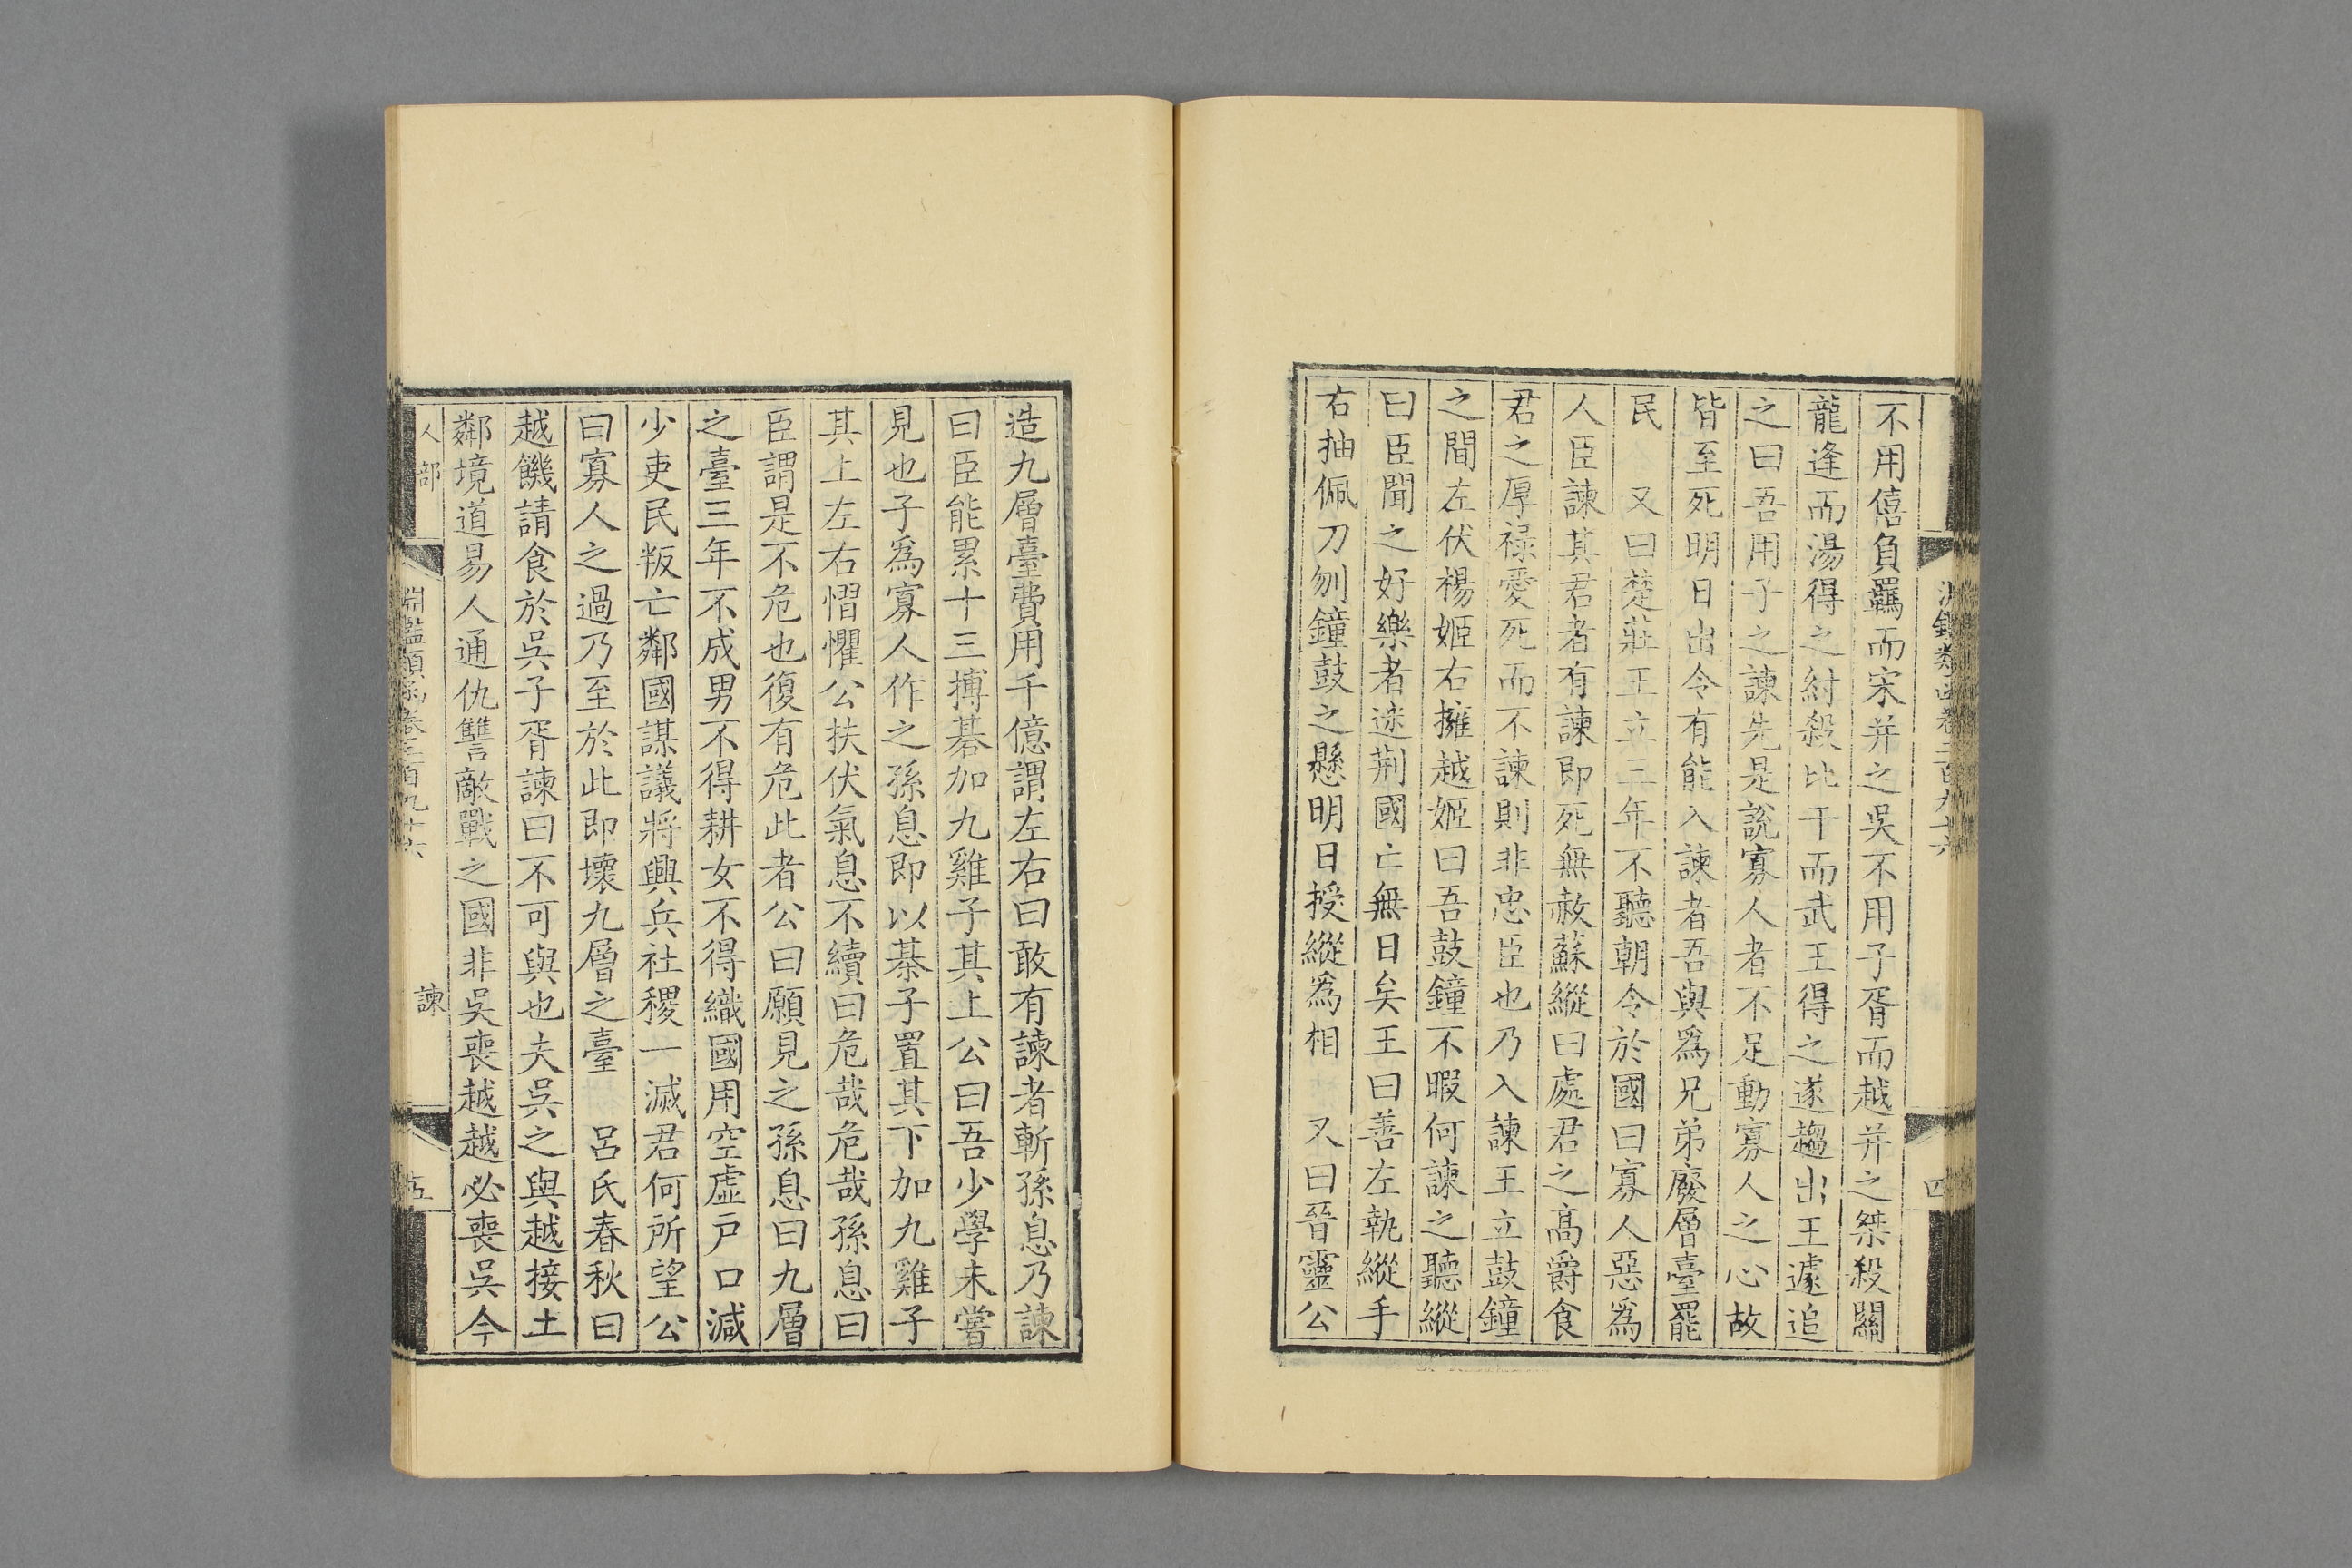 不用僖負羈而宋并之吳不用子胥而越并之桀殺關
龍逢而湯得之紂殺比干而武王得之遂趨出王遽追
之曰吾用子之諫先是說寡人者不足動寡人之心故
皆至死明日出令有能入諫者吾與爲兄弟廢層臺罷
民　又曰楚莊王立三年不聽朝令於國曰寡人惡爲
人臣諫其君者有諫即死無赦蘇縱曰處君之高爵食
君之厚祿愛死而不諫則非忠臣也乃入諫王立鼓鐘
之間左伏楊姬右擁越姬曰吾鼓鐘不暇何諫之聽縱
曰臣聞之好樂者迷荆國亡無日矣王曰善左執縱手
右抽佩刀刎鐘鼓之懸明日授縱爲相　又曰晉靈公
四
造九層臺費用千億謂左右曰敢有諫者斬孫息乃諫
曰臣能累十三搏碁加九雞子其上公曰吾少學未嘗
見也子爲寡人作之孫息即以棊子置其下加九雞子
其上左右慴懼公扶伏氣息不續曰危哉危哉孫息曰
臣謂是不危也復有危此者公曰願見之孫息曰九層
之臺三年不成男不得耕女不得織國用空虛戶口減
少吏民叛亡鄰國謀議將興兵社稷一滅君何所望公
曰寡人之過乃至於此即壞九層之臺　呂氏春秋曰
越饑請食於吳子胥諫曰不可與也夫吳之與越接土
鄰境道易人通仇讐敵戰之國非吳喪越越必喪吳今
人部　淵鑑類函卷二百九十六　諫　五